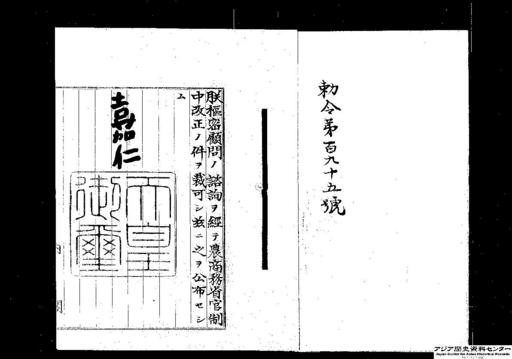 勅令第百九十五號
朕樞密顧問ノ諮詢ヲ經テ農商務省官制
中改正ノ件ヲ裁可シ玆ニ之ヲ公布セシ
ム
嘉仁
天皇
御璽
アジア歴史資料センター
Japan Center for Asian Historical Records